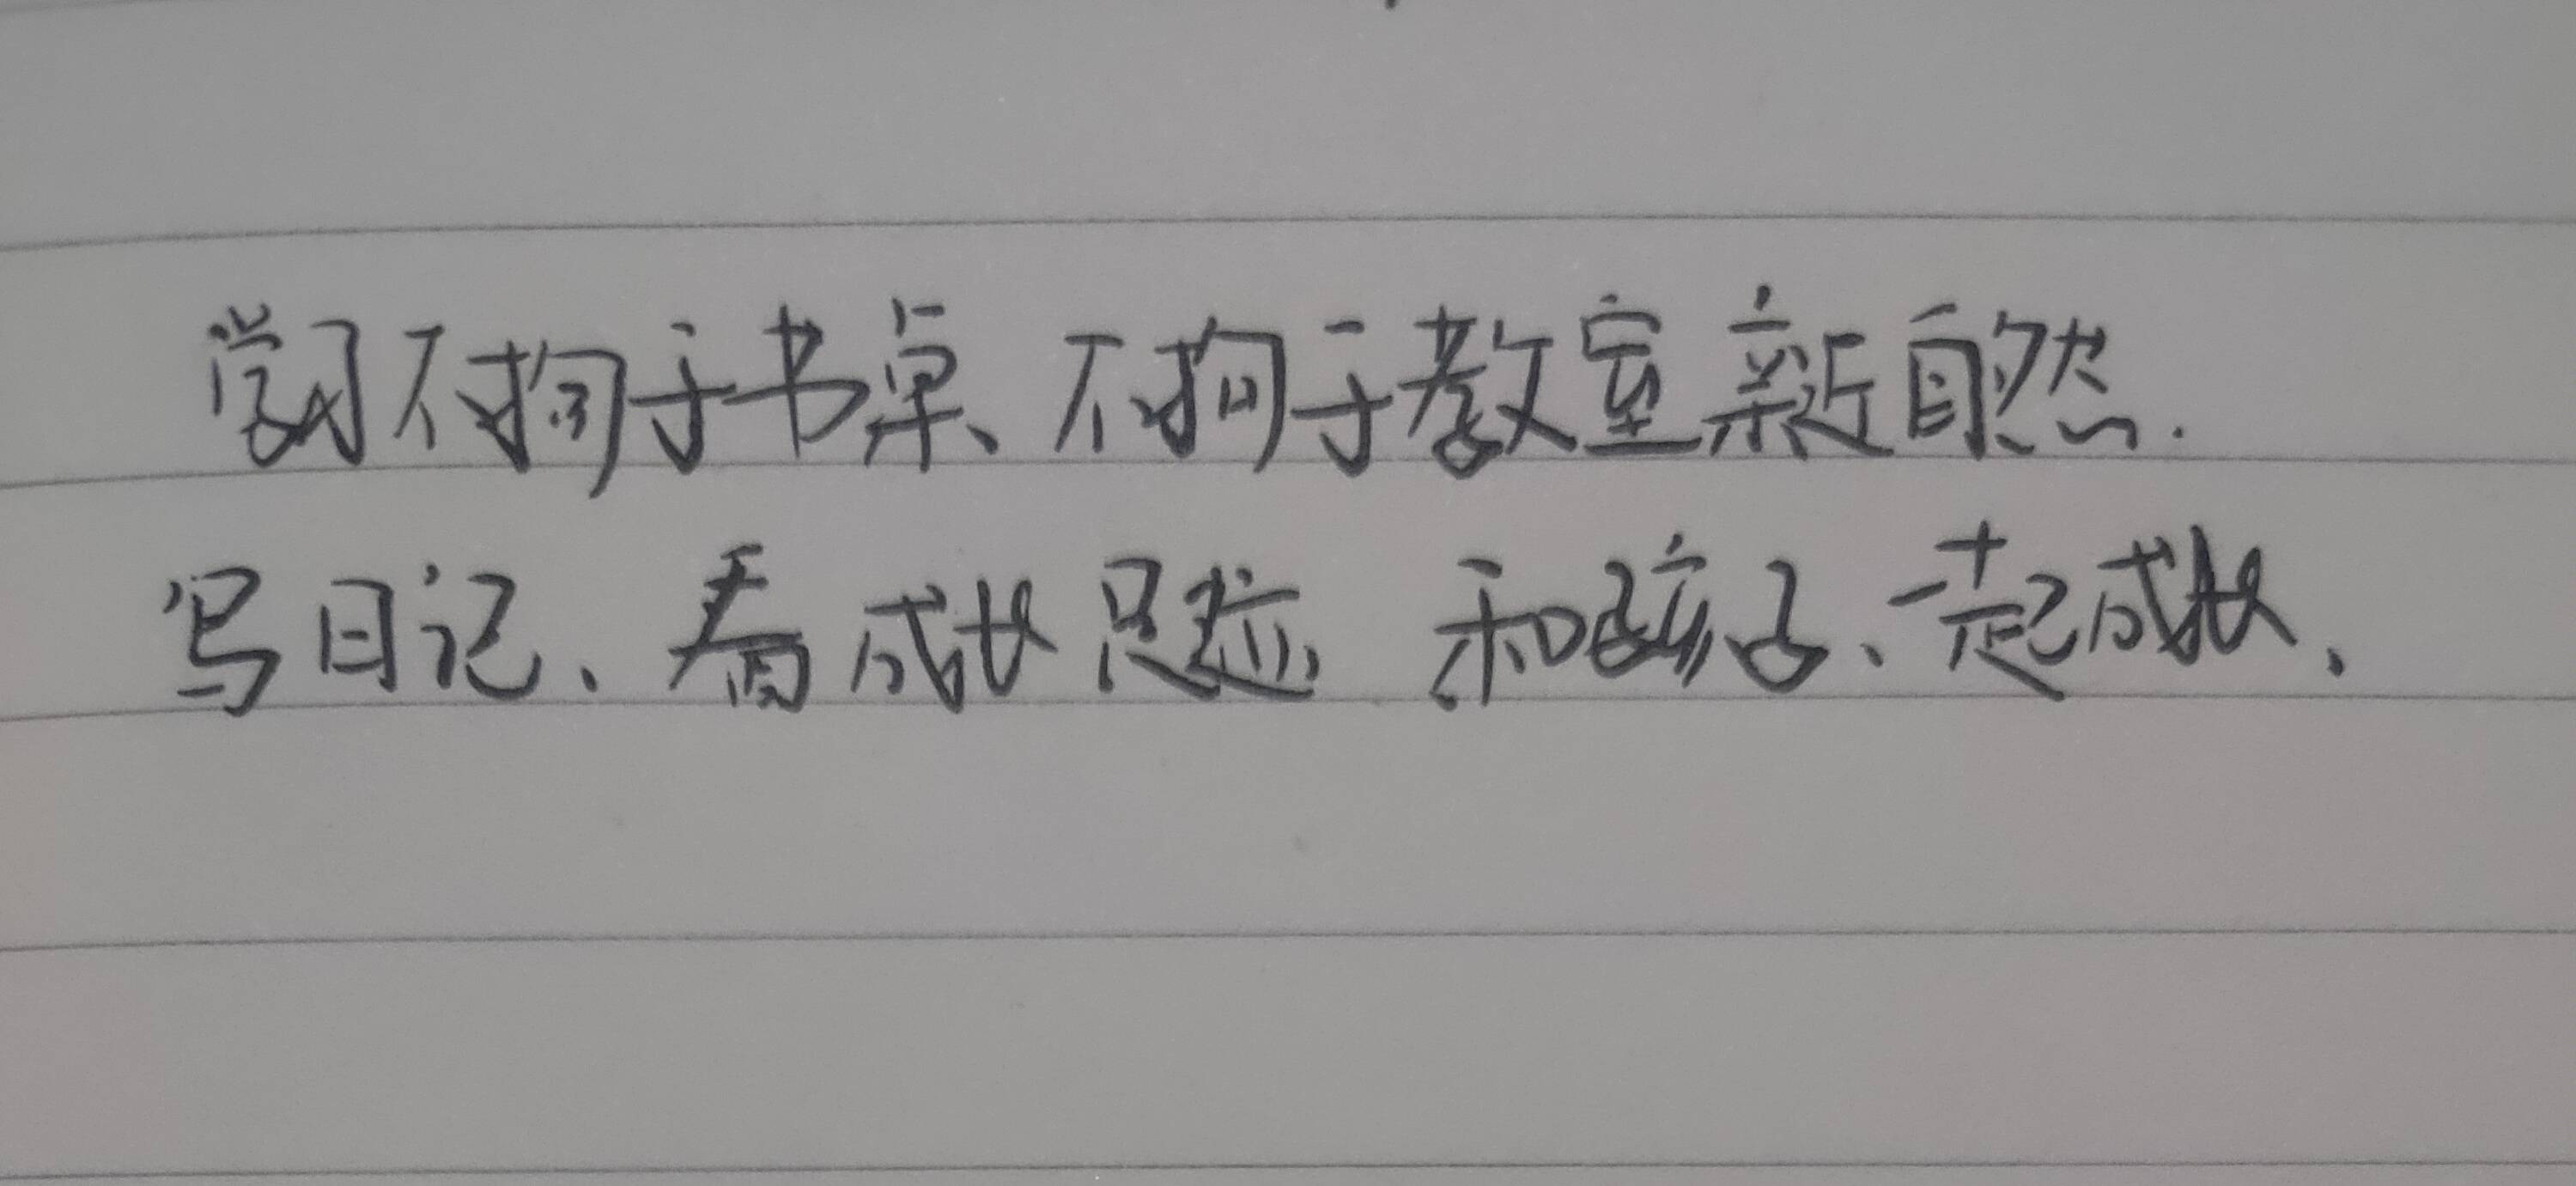 学习不拘于书桌、不拘于教室亲近自然.
写日记、看成长足迹 和孩子、一起成长、